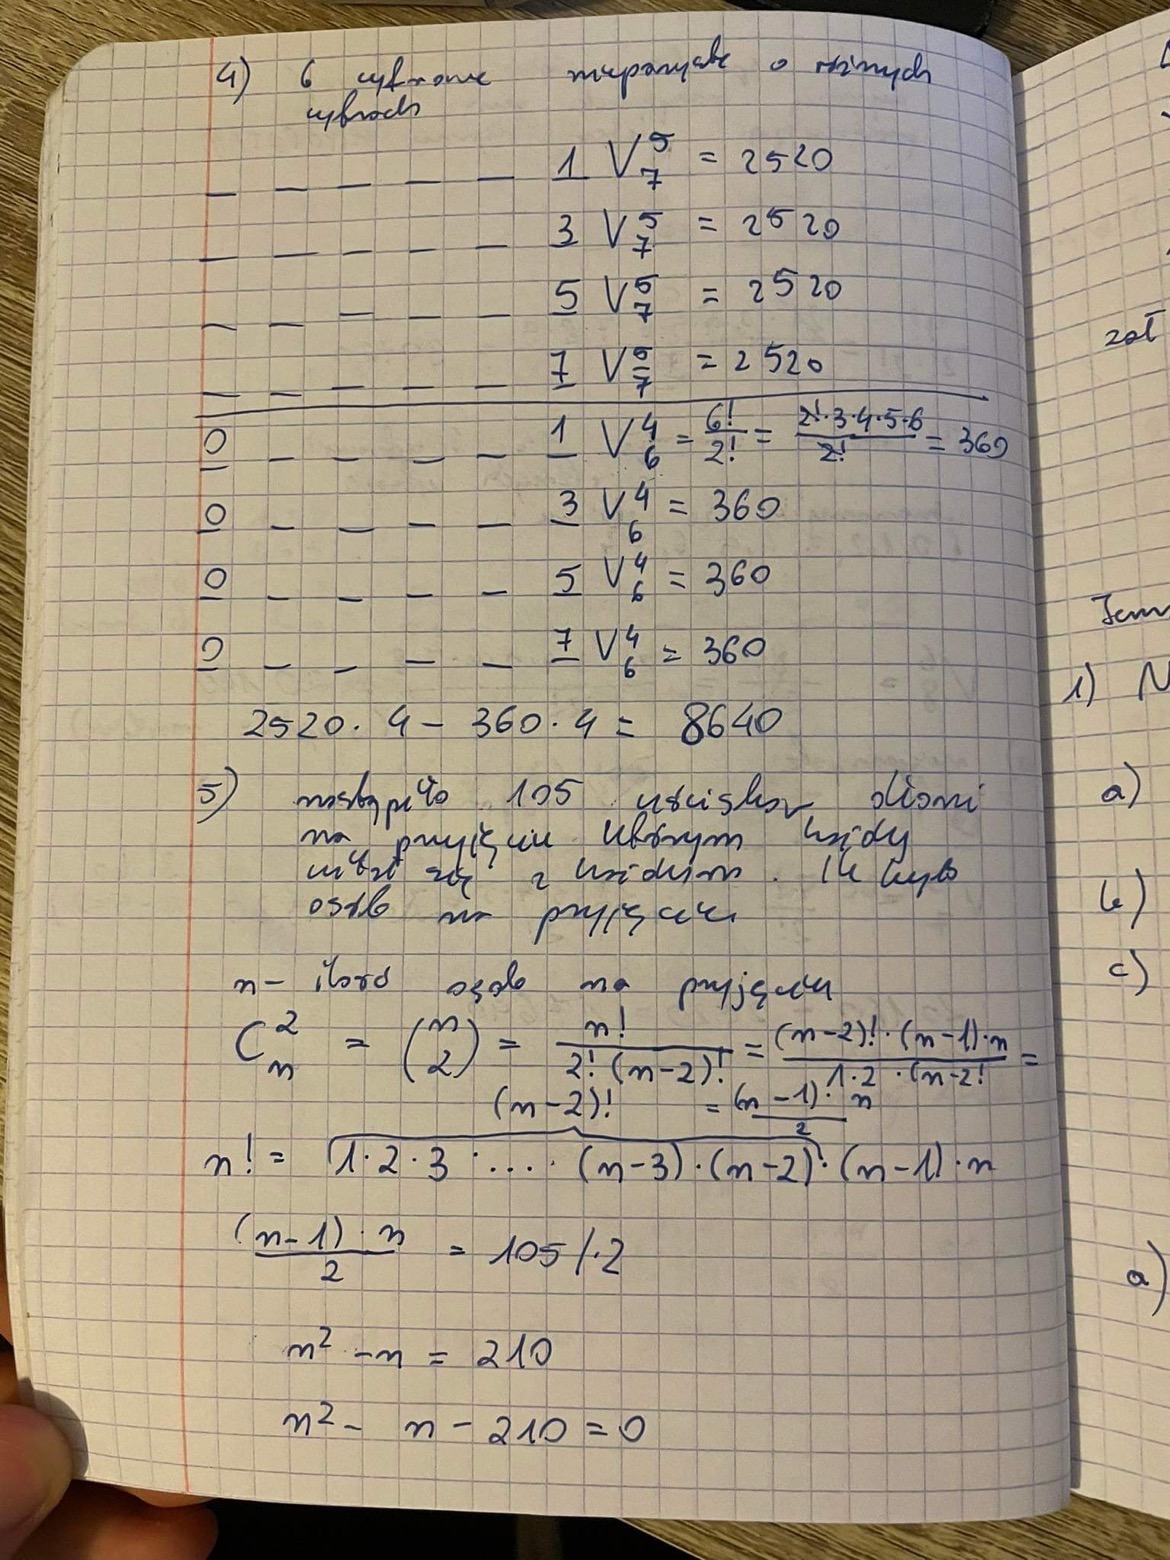 4) 6 cyfrowe nieparzyste o różnych
cyfrach
_ _ _ _ _ 1 V_7^5 = 2520
_ _ _ _ _ 3 V_7^5 = 2520
_ _ _ _ _ 5 V_7^5 = 2520
_ _ _ _ _ 7 V_7^5 = 2520
0 _ _ _ _ 1 V_6^4 = 6!/2! = 2!·3·4·5·6/2! = 360
0 _ _ _ _ 3 V_6^4 = 360
0 _ _ _ _ 5 V_6^4 = 360
0 _ _ _ _ 7 V_6^4 = 360
2520 · 4 - 360 · 4 = 8640
5) nastąpiło 105 uścisków dłoni
na przyjęciu którym każdy
witał się z każdym. Ile było
osób na przyjęciu
n - ilość osób na przyjęciu
C_n^2 = (n 2) = n!/2!·(n-2)! = (n-2)!·(n-1)·n/1·2·(n-2! =
(n-2)! = (n-1)·n/2
n! = 1·2·3·....·(n-3)·(n-2)·(n-1)·n
(n-1)·n/2 = 105 /·2
n² - n = 210
n² - n - 210 = 0
zał
1) N
a)
b)
c)
a)